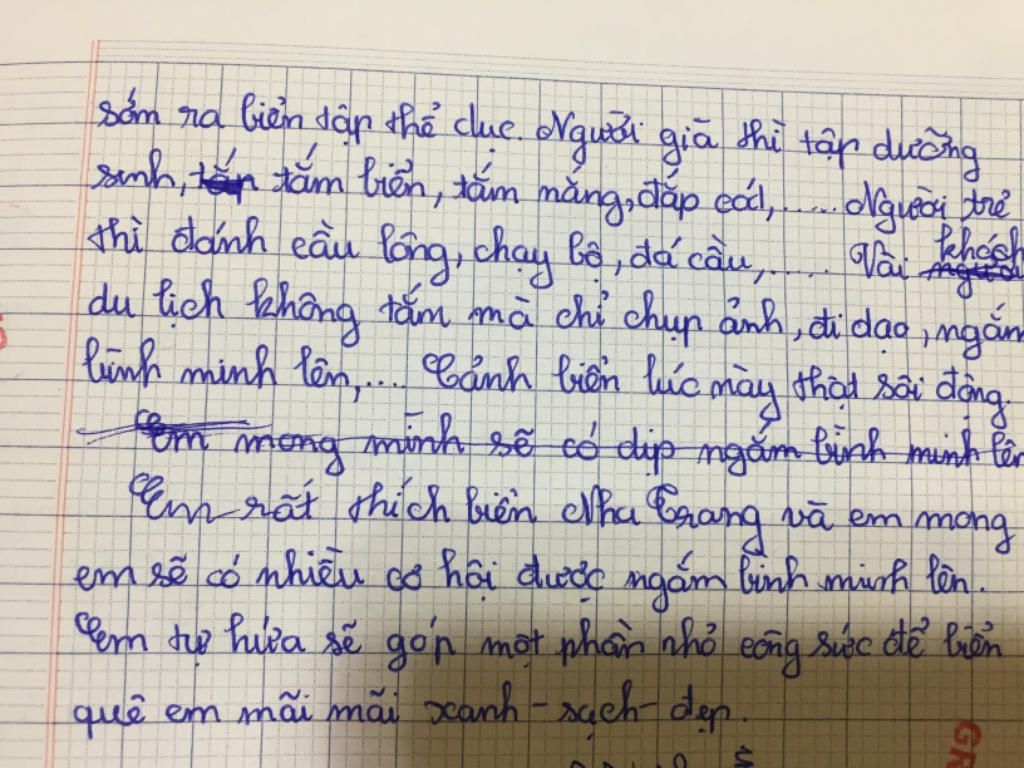 sớm ra biển tập thể dục. Người già thì tập dưỡng
sinh, tắm biển, tắm nắng, đắp cát,..... Người trẻ
thì đánh cầu lông, chạy bộ, đá cầu,..... Vài khách
du lịch không tắm mà chỉ chụp ảnh, đi dạo, ngắm
bình minh lên,... Cảnh biển lúc này thật sôi động.
Em mong mình sẽ có dịp ngắm bình minh lên
Em rất thích biển Nha Trang và em mong
em sẽ có nhiều cơ hội được ngắm bình minh lên.
Em tự hứa sẽ góp một phần nhỏ công sức để biển
quê em mãi mãi xanh - sạch - đẹp.
GR